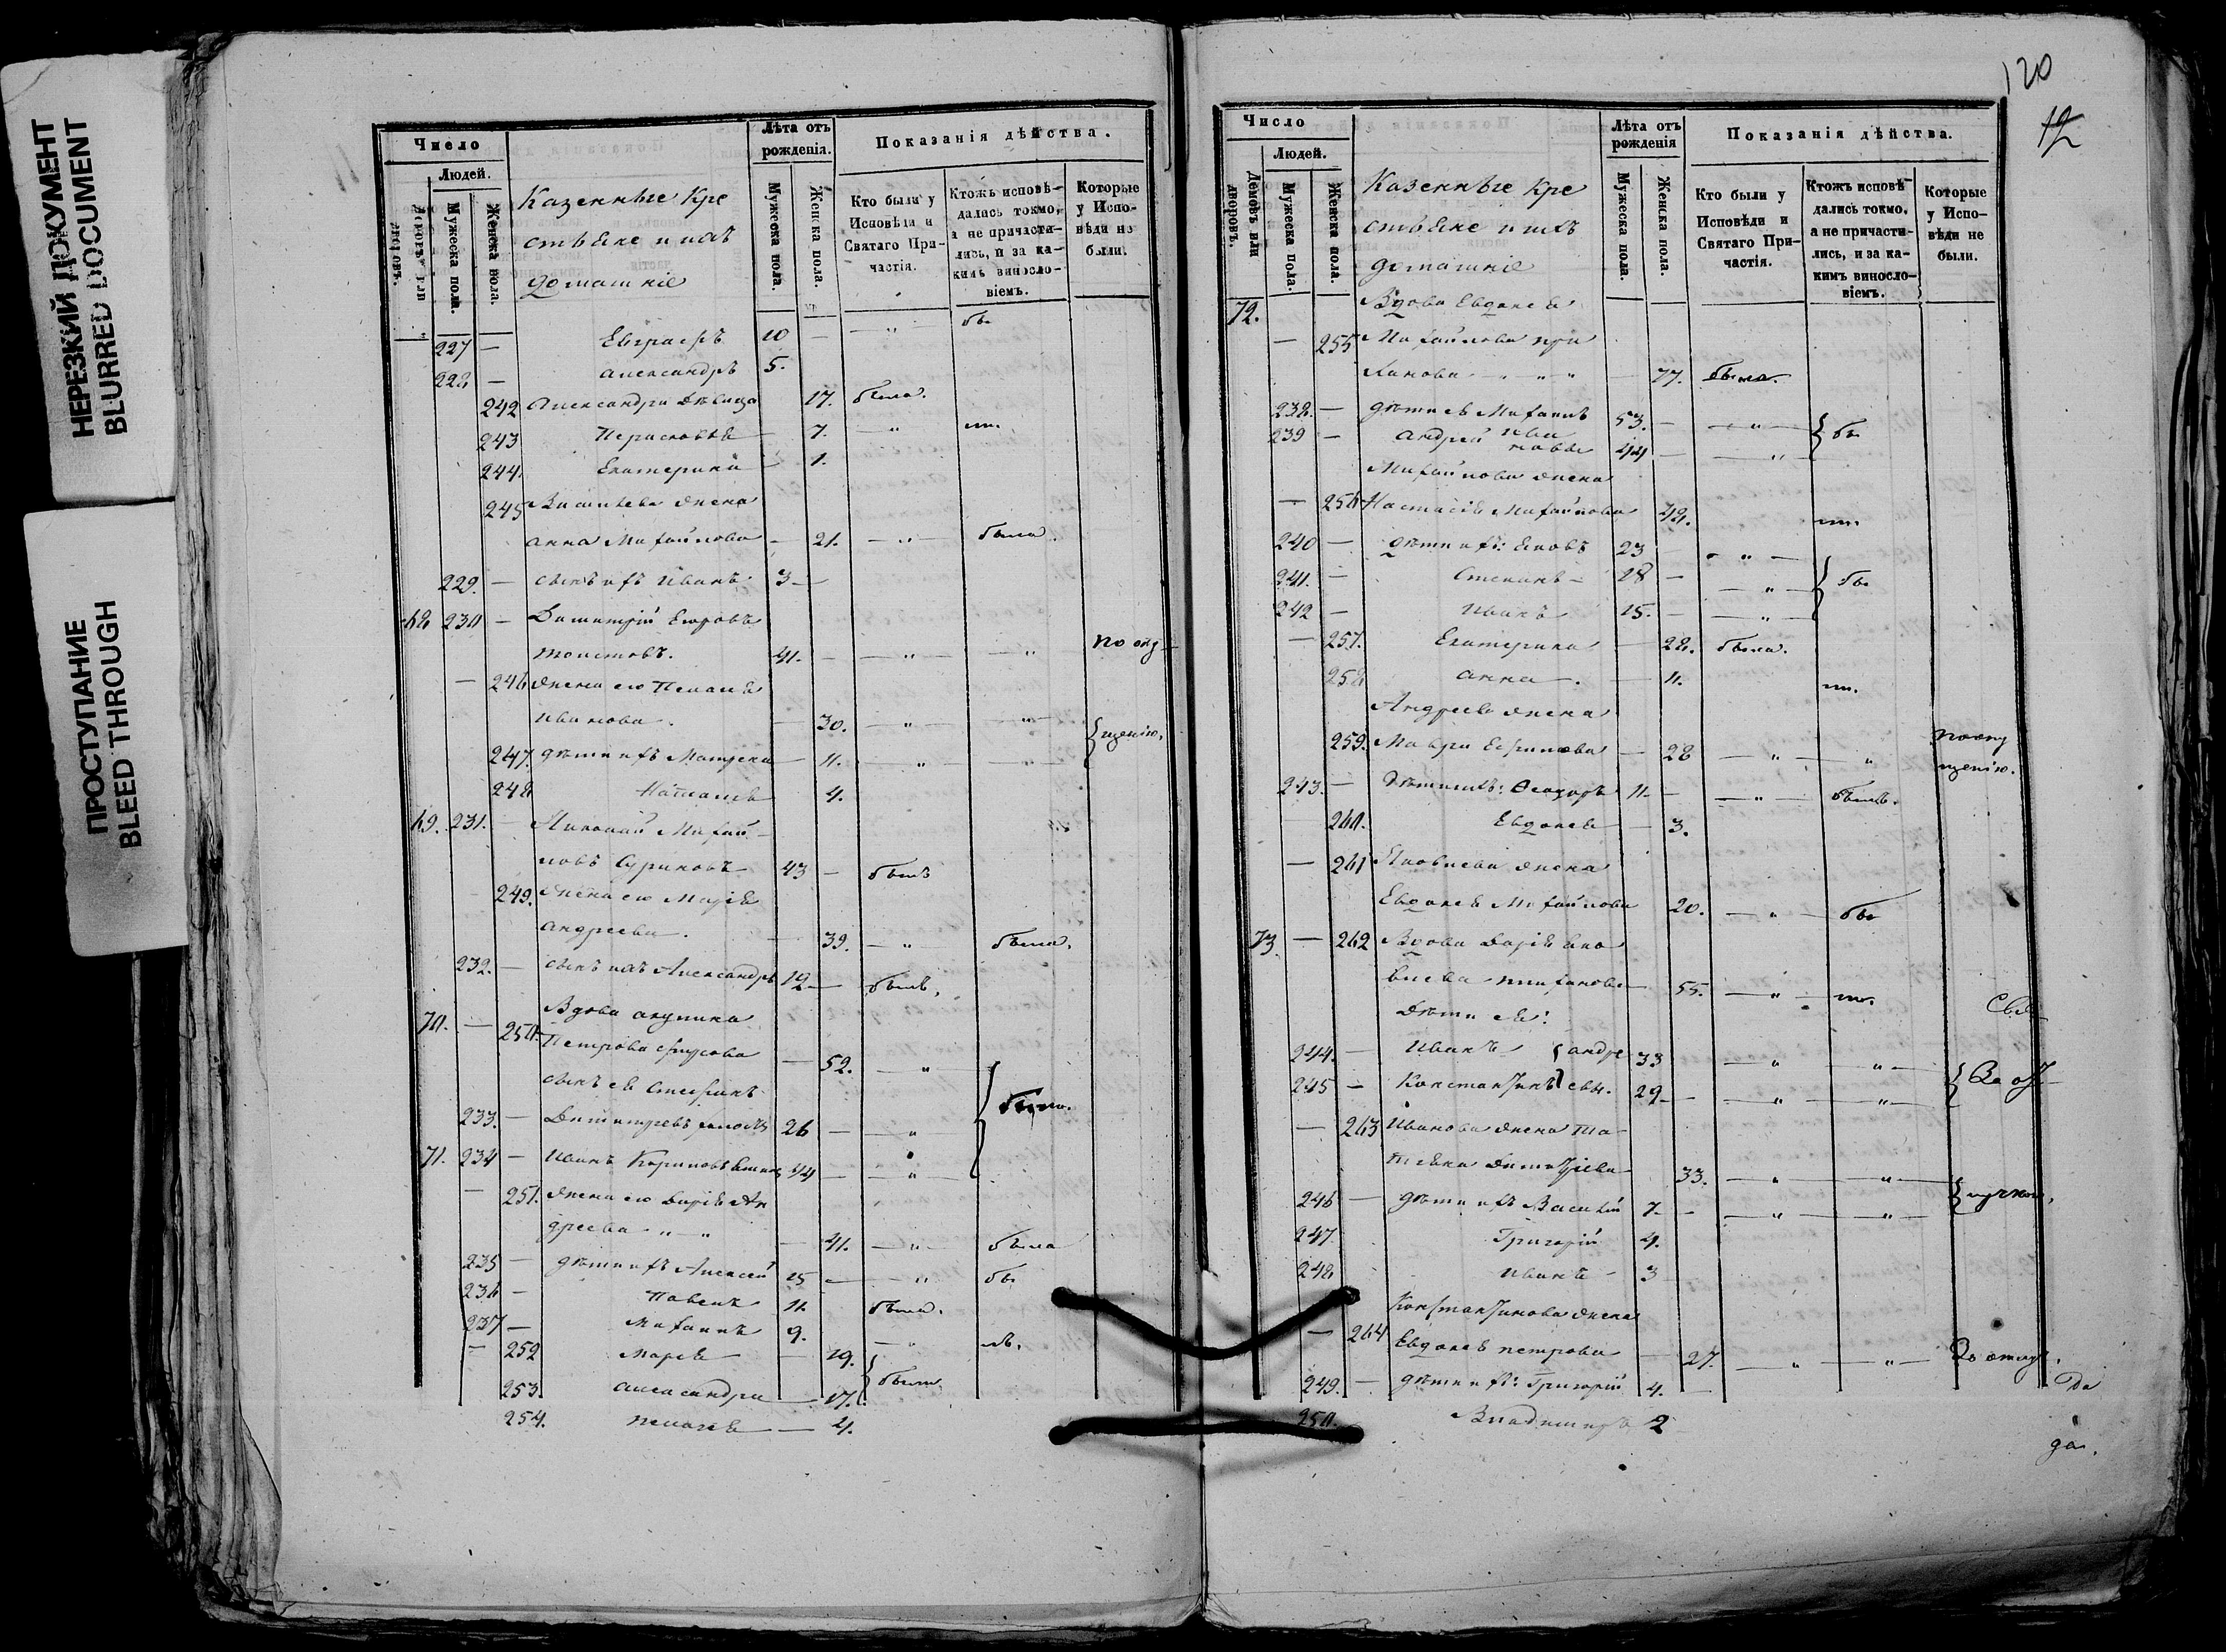 НЕРЕЗКИЙ ДОКУМЕНТ
BLURRED DOCUMENT
ПРОСТУПАНИЕ
BLEED THROUGH
Число
Людей.
Мужеска пола.
Женска пола.
Казенные Кре
стьяне и ихъ
домашніе
Лѣта отъ рожденія.
Мужеска пола.
Женска пола.
Показанія дѣйства.
Кто были у Исповѣди и Святаго При-частія.
Ктожъ исповѣ-дались токмо, а не причасти-лись, и за ка-кимъ виносло-віемъ.
Которые у Испо-вѣди не были.
227 — Евграфъ 10 — — „ — бы
228 — Александръ 5.
242 Александра дѣвица 17. была.
243 Перасковья — 7. — „
244. Екатерина — 1.
245 Васильева жена
Анна Михайлова — 21. — „ — была.
229. — сынъ ихъ Иванъ 3 —
68 230 — Димитрій Егоровъ
Толстовъ. 41. — — „ — — „ по опу
— 246 жена его Пелагея
Иванова. — 30. — „ — — „ — щенію.
247. дѣти ихъ Матрена — 11. — „ — — „ —
248 Наталья 4.
69. 231. — Николай Михай-
ловъ Суриковъ 43 — былъ
249. жена его Марія
Андреева. — 39. — „ — была.
232. — сынъ ихъ Александръ 12 — былъ.
70. — 250. Вдова Акулина
Петрова — 52. — „
сынъ ея Стефанъ
233. — Димитревъ 26 — — „
71. 234 — Иванъ 44 — — „
— 251. жена его Дарія Ан
дреева „ — „ — 41. — „ — была
235 — дѣти ихъ Алексей 15 — — „ бы
236 — Павелъ 11. былъ.
237 — Михаилъ 9. — „ лъ.
— 252 Марія — 19.
253. Александра — 17. были.
254. Пелагея — 4.
120
12
Число
Людей.
Домовъ или дворовъ.
Мужеска пола.
Женска пола.
Казенные Кре
стьяне и ихъ
домашніе
Лѣта отъ рожденія
Мужеска пола.
Женска пола.
Показанія дѣйства.
Кто были у Исповѣди и Святаго При-частія.
Ктожъ исповѣ дались токмо, а не причасти-лись, и за ка-кимъ виносло-віемъ.
Которые у Испо-вѣди не были.
72. Вдова Евдокея
— 255 Михайлова
— „ „ „ — 77. была.
238. — дѣти ея Михаилъ 53. — — „ —
239 — Андрей Ива
новы 44 — — „ бы
Михайлова жена
— 256 Настасія Михайлова 42.
240 — дѣти ихъ: 23 — „ —
241. — Степанъ — 18 — — „ — бы
242 — Иванъ 15. — — „
— 257. Екатерина — 22. была.
258 Анна. — 11.
Андреева жена
259. Мавра Ефимова — 28 — „ — „ по опу
щенію.
243. — Дѣти ихъ: Ѳеодоръ 11. — — „ — былъ.
260. Евдокея — 3.
— 261 жена
Евдокея Михайлова 20. — „ — бы
73. — 262 Вдова Дарія
— 55. — „ —
Дѣти ея:
244. — Иванъ { Андре 33 — „ — „
245 — Константинъ } евы. 29 — — „ — „ —
— 263 Иванова жена Та-
тьяна 33. — „ — „
246 — дѣти ихъ Василій 7 — — „ — — „ —
247. Григорій 4.
248 Иванъ — 3
Константинова жена
— 264 Евдокея Петрова — 27. — „ — „ — За отлуч.
249. — дѣти ихъ: Григорій 4. —
250. Владимиръ 2